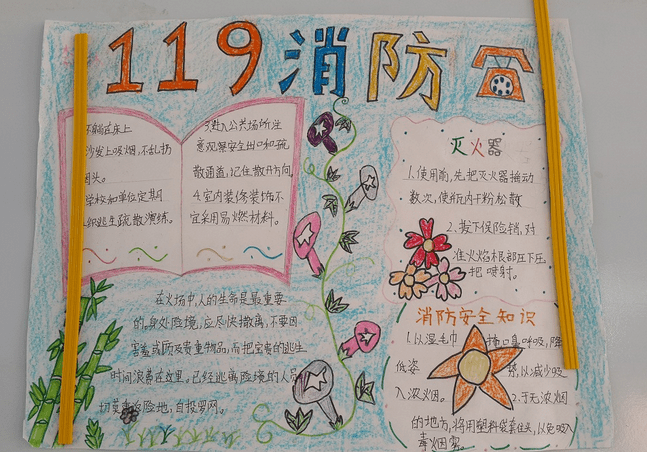 119消防
不躺在床上
沙发上吸烟,不乱扔
头。
学校和单位定期
织逃生疏散演练。
3.进入公共场所注
意观察安全出口和疏
散通道,记住散开方向
4.室内装修装饰不
宜采用易燃材料。
灭火器
1.使用前,先把灭火器摇动
数次,使瓶内干粉松散
2.拔下保险销,对
准火焰根部压下压
把喷射。
在火场中,人的生命是最重要
的,身处险境,应尽快撤离,不要因
害羞或顾及贵重物品,而把宝贵的逃生
时间浪费在这里。已经逃离险境的人员
切莫重返险地,自投罗网。
消防安全知识
1.以湿毛巾 捂口鼻呼吸,降
低姿 势,以减少吸
入浓烟。 2.于无浓烟
的地方,将用塑料袋套住头,以免吸入
毒烟雾。